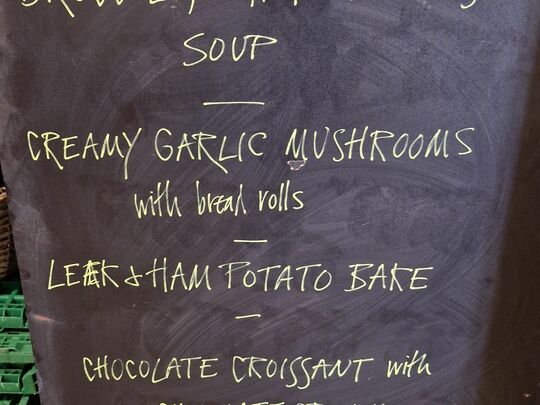 SOUP
CREAMY GARLIC MUSHROOMS
with bread rolls
LEAK & HAM POTATO BAKE
CHOCOLATE CROISSANT with